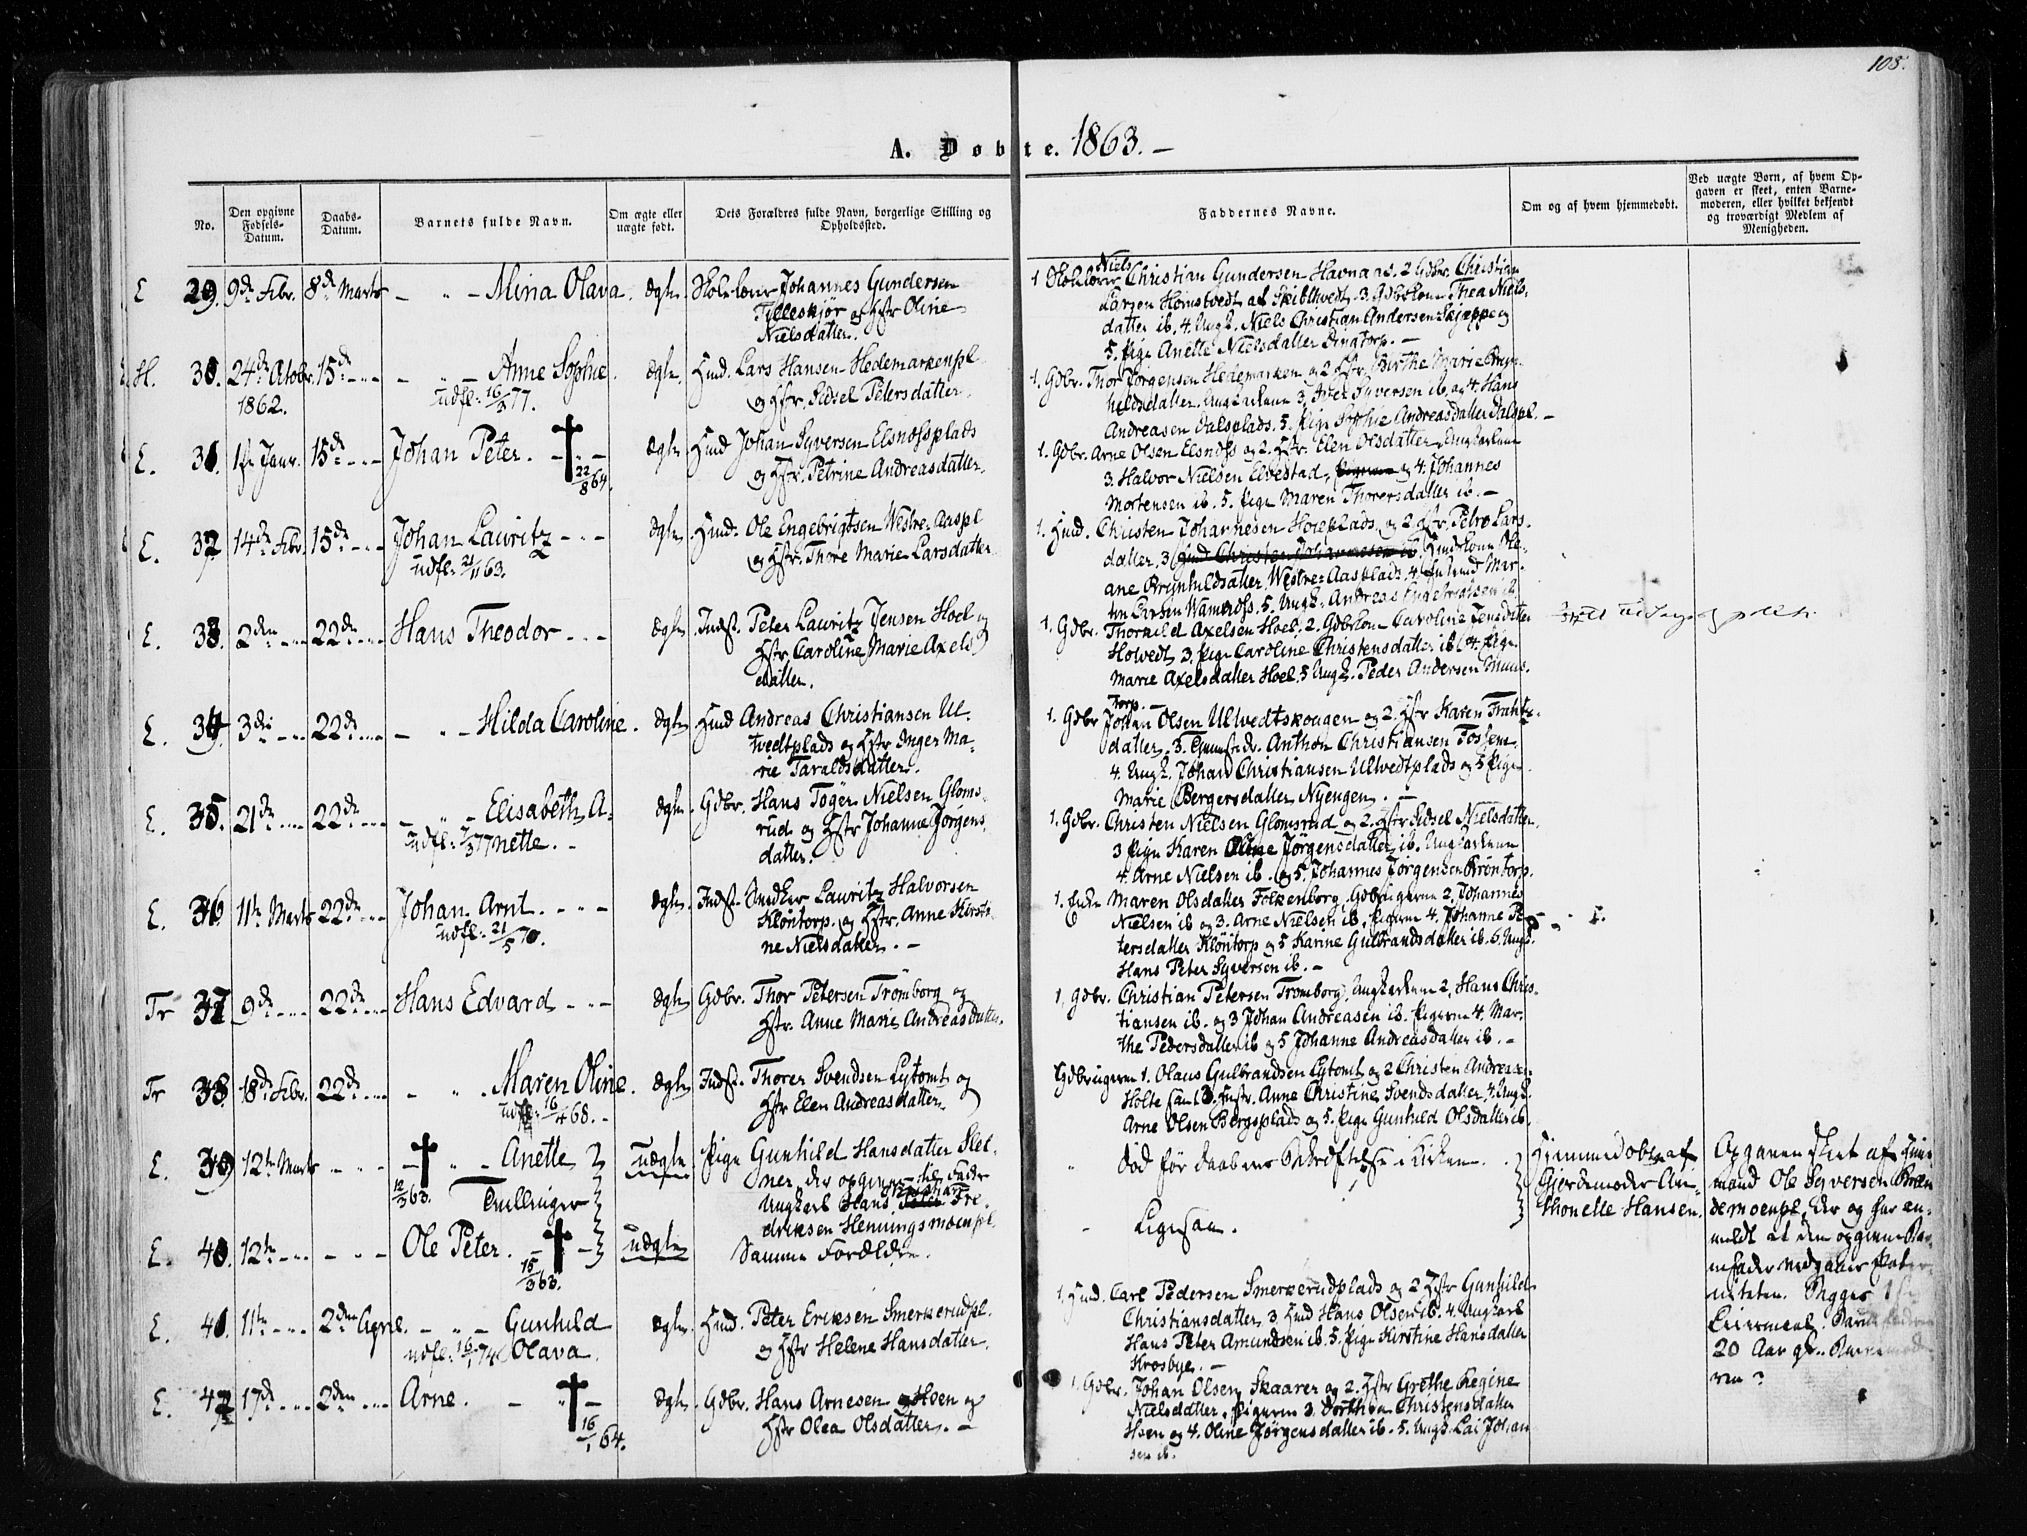 108.
A. Døbte. 1863. –
No.
Den opgivne Fødsels-Datum.
Daabs-Datum.
Barnets fulde Navn.
Om ægte eller uægte født.
Dets Forældres fulde Navn, borgerlige Stilling og Opholdssted.
Faddernes Navne.
Om og af hvem hjemmedøbt.
Ved uægte Børn, af hvem Opgaven er skeet, enten Barnemoderen, eller hvilket bekjendt og troværdigt Medlem af Menigheden.
E 29. 9de Febr. 8de Marts – " – Mina Olava. Ægte Skolelærer Johannes Gundersen
og Hstr Oline
Nielsdatter.
1 Skolelærer Niels Christian Gundersen Havnaas. 2 Gdbr. Christian
Larsen Homstvedt af Skibtvedt. 3. Gdbrkone Thea Niels-
datter ib. 4. Ungk. Niels Christian Andersen og
5. Pige Anette Nielsdatter –
H. 30. 24de Octobr. 15de – " – Anne Sophie. Ægte. Hmd. Lars Hansen Hedemarkenpl.
1862. udfl: 16/3 77. og Hstr. Sidsel Petersdatter.
1. Gdbr. Thor Jørgensen Hedemarken og 2 Hstr. Birthe Marie Bryn-
hildsdatter. Ungkarlene 3. Syversen ib. og 4. Hans
Andreasen Dalsplads. 5. Pige Sophie Andreasdatter Dalspl. –
E. 31. 1ste Janr. 15de Johan Peter. Ægte Hmd Johan Syversen Elsnessplads
22/8 64. og Hstr. Petrine Andreasdatter.
1. Gdbr. Arne Olsen Elsness og 2. Hstr. Elen Olsdatter. Ungkarlene
3. Halvor Nielsen Elvestad, og 4. Johannes
Mortensen ib. 5. Pige Maren Thorersdatter ib. –
E. 32 14de Febr. 15de Johan Lauritz Ægte. Hmd. Ole Engebrigtsen Westre-Aaspl
udfl: 21/11 63. og Hstr. Thore Marie Larsdatter
1. Hmd. Christen Johannesen Hoelplads og 2 Hstr. Petro Lars-
datter. 3 Hmd Christen Johannesen ib Hmdskone Ole-
ane Brynhildsdatter Westre-Aasplads. 4. Mar-
tin Larsen 5. Ungk. Andreas Engebretsen ib.
E. 33. 2den 22de Hans Theodor Ægte Indst. Peter Lauritz Jensen Hoel og
Hstr Caroline Marie Axels
datter.
1. Gdbr. Thorkild Axelsen Hoel. 2. Gdbrkone Caroline Jensdatter
Holvedt 3. Pige Caroline Christensdatter ib. 4. Pige
Marie Axelsdatter Hoel. 5 Ungk. Peder Andersen Muus-
torp. –
E. 34. 3die 22de – " – Hilda Caroline. Ægte Hmd Andreas Christiansen Ul-
tvedtplads og Hstr Inger Ma-
rie Taraldsdatter.
1. Gdbr Johan Olsen Ultvedtskougen og 2. Hstr Karen Frants-
datter. 3. Anthon Christiansen Fossem
4. Ungk. Johan Christiansen Ultvedtplads og 5 Pige
Marie Bergersdatter Nyengen. –
E. 35. 21de 22de – " – Elisabeth A- Ægte. Gdbr. Hans Toger Nielsen Gloms-
udfl: 7/3 77 nette. – rud og Hstr Johanne Jørgens-
datter.
1. Gdbr. Christen Nielsen Glomsrud og 2. Hstr Sidsel Nielsdatter.
3 Pige Karen Oline Jørgensdatter ib. Ungkarlene
4. Arne Nielsen ib. og 5. Johannes Jørgensen
E. 36 11te Marts 22de Johan Arnt. Ægte. Indst. Snedker Lauritz Halvorsen
udfl: 21/5 70. Kløntorp og Hstr. Anne Kirsti-
ne Nielsdatter. –
1. Enke Maren Olsdatter Folkenborg, 2. Johannes
Nielsen ib og 3. Arne Nielsen ib. Pigerne 4. Johanne Pe-
tersdatter Kløntorp og 5 Karine Gulbrandsdatter ib. 6. Ungk.
Hans Peter Syversen ib. –
Tr 37 9de 22de Hans Edvard Ægte Gdbr. Thor Petersen Trømborg og
Hstr. Anne Marie Andreasdatter.
1. Gdbr. Christian Petersen Tromborg, Ungkarlene 2. Hans Chris-
tiansen ib. og 3 Johan Andreasen ib. Pigerne 4. Mar-
the Pedersdatter ib og 5 Johanne Andreasdatter ib. –
Tr 38. 18de Febr. 22de – " Maren Oline. Ægte Indst. Thorer Svendsen Lytomt og
udfl: 16/4 68. Hstr Elen Andreasdatter
Gdbrugerne 1. Olaus Gulbrandsen Lytomt og 2 Christen Andreas-
Holte samt 3. Anne Christine Svendsdatter, 4. Ungk.
Arne Olsen Bergsplads og 5. Pige Gunhild Olsdatter ib.
E. 39 12te Marts – " – Anette uægte Pige Gunhild Hansdatter Slet-
12/3 63. Tvillinger ner, der opgiver til Fader
Ungkarl Hans Fre-
driksen Henningsmoenpl.
" død før Daabens Bekræftelse i Kirken.
Hjemmedøbt af
Gjordemoder An-
thonette Hansen.
Opgaven skeet af
mand Ole Syversen
moenpl. der og har an-
meldt at den opgivne Bar-
nefader vedgaaer Pater-
niteten. Begges 1ste
Leiermaal.
20 Aar gl.
E. 40. 12te Ole Peter. uægte Samme Forældre.
15/3 63.
– Ligesaa.
E. 41. 11te 2den April. – " – Gunhild Ægte. Hmd. Peter Eriksen Smerkerudpl.
udfl: 16/1 74 Olava. og Hstr Helene Hansdatter.
1. Hmd. Carl Pedersen Smerkerudplads og 2 Hstr Gunhild
Christiansdatter 3. Hmd Hans Olsen ib. 4. Ungkarl
Hans Peter Amundsen ib. 5. Pige Kirstine Hansdatter
Krosbye. –
E. 42 17de 2den Arne. – " – Ægte. Gdbr. Hans Arnesen Hoen og
16/1 64. Hstr Olea Olsdatter. –
1. Gdbr. Johan Olsen Skaarer og 2. Hstr Grethe Regine
Nielsdatter. Pigerne 3. Dorthea Christensdatter
Hoen og 4. Oline Jørgensdatter ib. 5. Ungk. Lai Johan
sen ib.